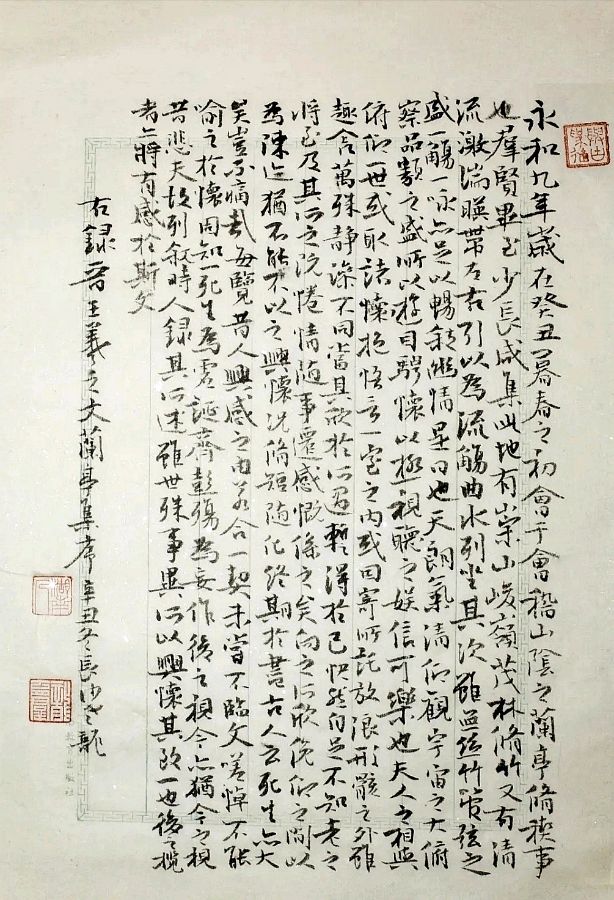 永和九年歲在癸丑暮春之初會于會稽山陰之蘭亭脩禊事
也羣賢畢至少長咸集此地有崇山峻嶺茂林脩竹又有清
流激湍暎帶左右引以為流觴曲水列坐其次雖無絲竹管弦之
盛一觴一詠亦足以暢敘幽情是日也天朗氣清仰觀宇宙之大俯
察品類之盛所以遊目騁懷以極視聽之娛信可樂也夫人之相與
俯仰一世或取諸懷抱悟言一室之内或因寄所託放浪形骸之外雖
趣舍萬殊靜躁不同當其欣於所遇暫得於己快然自足不知老之
將至及其所之既惓情随事遷感慨係之矣向之所欣俛仰之間以
為陳迹猶不能不以之興懷況脩短随化終期於盡古人云死生亦大
矣豈不痛哉每覽昔人興感之由若合一契未嘗不臨文嗟悼不能
喻之於懷固知一死生為虛誕齊彭殤為妄作後之視今亦猶今之視
昔悲夫故列叙時人録其所述雖世殊事異所以興懷其致一也後之攬
者亦將有感於斯文
右録晉王羲之文蘭亭集序辛丑冬長沙
出版社